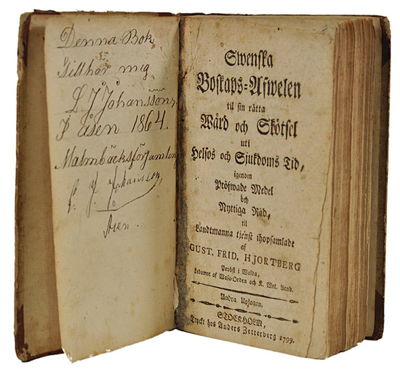 Denna Bok
tillhör mig
L J Johansson
Åsen 1864.
Malmbäcks församlin
J. Johansson
Åsen.
Swenska
Boskaps-Afwelen
til sin rätta
Wård och Skötsel
uti
Helsos och Sjukdoms Tid,
igenom
Pröfwade Medel
och
Nyttiga Råd,
til
Landtmanna tjenst ihopsamlade
af
GUST. FRID. HJORTBERG
Probst i Walda,
Ledamot af Wasa-Orden och K. Wet. Acad.
Andra Uplagan.
STOCKHOLM,
Tryckt hos Anders Zetterberg 1799.